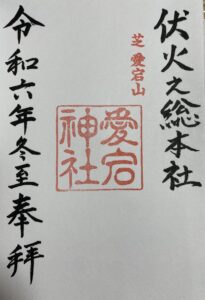 伏火之総本社
芝愛宕山
愛宕神社
令和六年冬至奉拝